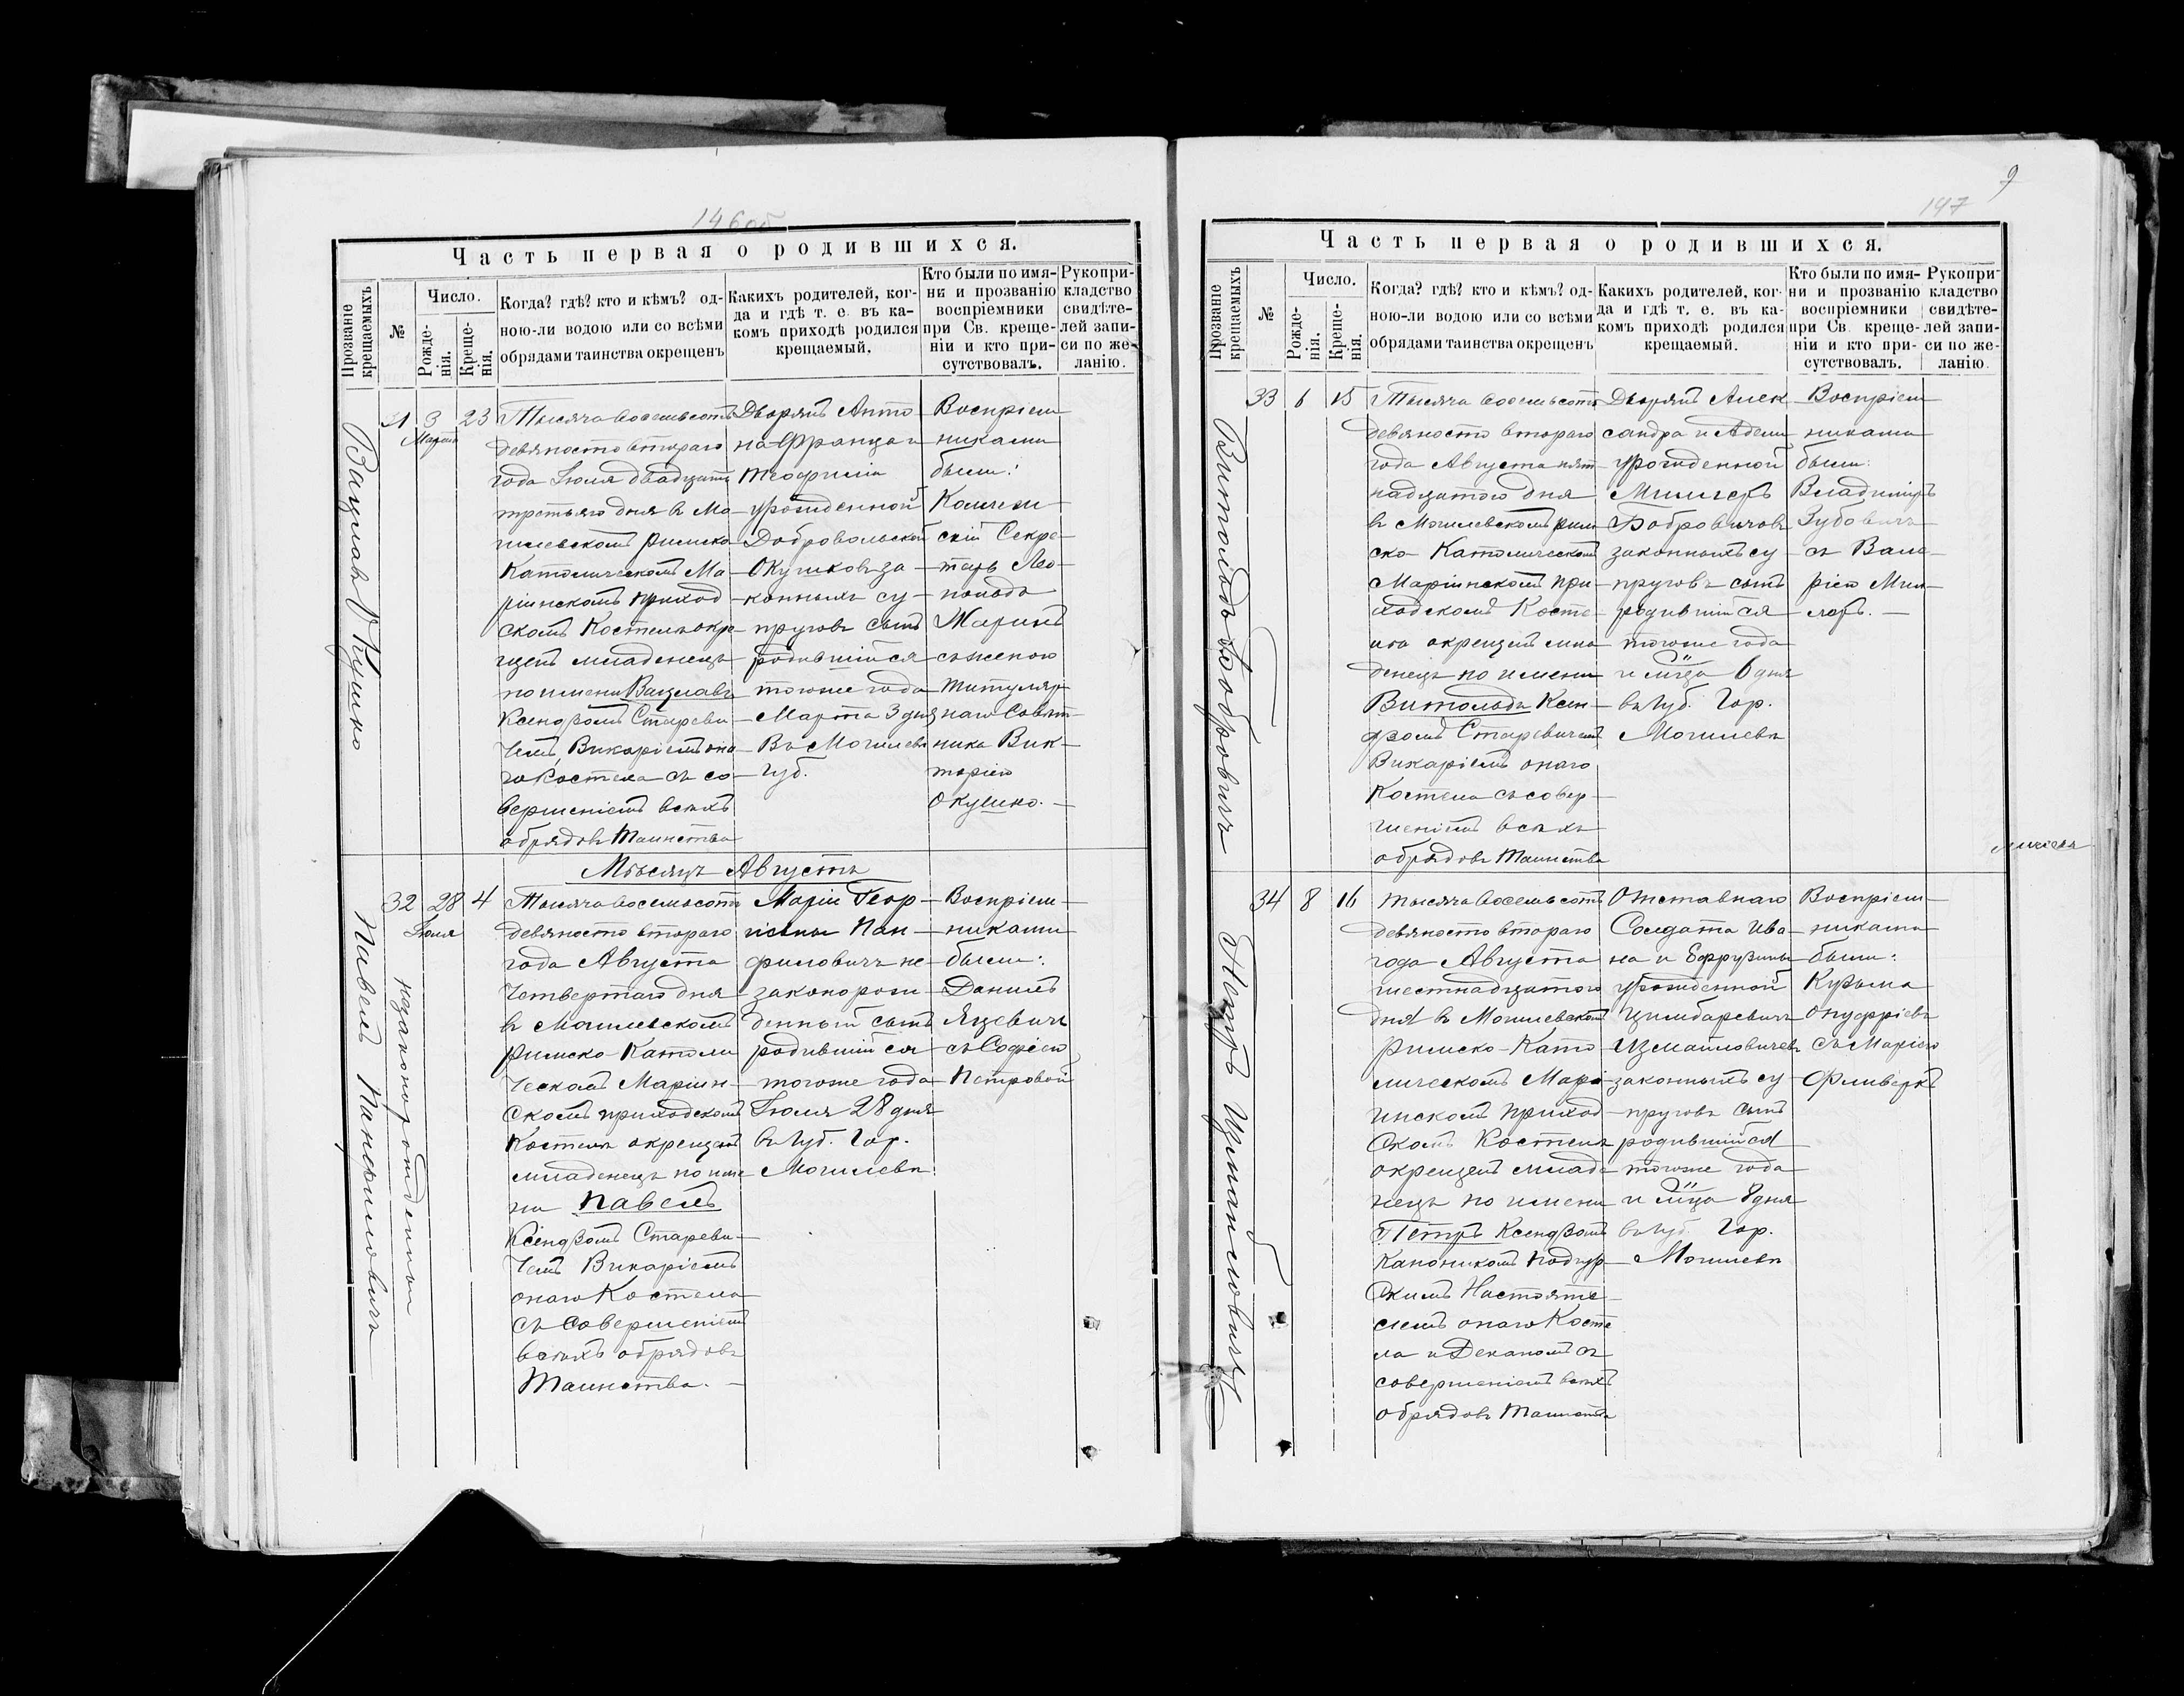 146об
Часть первая о родившихся.
Прозваніе крещаемыхъ
№
Число.
Рожде-
нія.
Креще-
нія.
Когда? гдѣ? кто и кѣмъ? од-
ною-ли водою или со всѣми
обрядами таинства окрещенъ
Какихъ родителей, ког-
да и гдѣ т. е. въ ка-
комъ приходѣ родился
крещаемый.
Кто были по имя-
ни и прозванію
воспріемники
при Св. креще-
ніи и кто при-
сутствовалъ.
Рукопри-
кладство
свидѣте-
лей запи-
си по же-
ланію.
Вацлавъ Окушко
31 3 23
Марта
Тысяча восемьсотъ
девяносто втораго
года Іюля двадцать
третьяго дня въ Мо-
гилевскомъ Римско
Католическомъ Ма-
ріинскомъ приход
скомъ Костелѣ окре-
щенъ младенецъ
по имени Вацлавъ
Ксендзомъ Стареви-
чемъ, Викаріемъ она
го Костела съ со-
вершеніемъ всѣхъ
обрядовъ Таинства
Дворянъ Анто
на-Франца и
Теофиліи
урожденной
Добровольской
Окушковъ за-
конныхъ су-
пруговъ сынъ
родившійся
тогоже года
Марта 3 дня
Въ Могилевѣ
губ.
Воспріем
никами
были:
Коллеж
скій Секре-
тарь Лео-
польдъ
Жаринъ
съ женою
Титуляр
наго Совѣт-
ника Вик-
торіею
Окушко.
Мѣсяцъ Августъ
Павелъ Панфиловичъ
незаконорожденный
32 28 4
Іюля
Тысяча восемьсотъ
девяносто втораго
года Августа
четвертаго дня
въ Могилевскомъ
Римско-Католи
ческомъ Маріин-
скомъ приходскомъ
Костелѣ окрещенъ
младенецъ по име
ни Павелъ
Ксендзомъ Стареви-
чемъ Викаріемъ
онаго Костела
съ совершеніемъ
всѣхъ обрядовъ
Таинства.
Маріи Геор-
гіевны Пан-
филовичъ не-
законорож-
денный сынъ
родившійся
тогоже года
Іюля 28 дня
въ губ. гор.
Могилевѣ.
Воспріем-
никами
были:
Даніилъ
Яцевичъ
съ Софіею
Петровой
9
147
Часть первая о родившихся.
Прозваніе крещаемыхъ
№
Число.
Рожде-
нія.
Креще-
нія.
Когда? гдѣ? кто и кѣмъ? од-
ною-ли водою или со всѣми
обрядами таинства окрещенъ
Какихъ родителей, ког-
да и гдѣ т. е. въ ка-
комъ приходѣ родился
крещаемый.
Кто были по имя-
ни и прозванію
воспріемники
при Св. креще-
ніи и кто при-
сутствовалъ.
Рукопри-
кладство
свидѣте-
лей запи-
си по же-
ланію.
Витольдъ Бобровичъ
33 6 15
Тысяча восемьсотъ
девяносто втораго
года Августа пят
надцатого дня
въ Могилевскомъ Рим
ско-Католическомъ
Маріинскомъ при
ходскомъ Косте
лѣ окрещенъ мла
денецъ по имени
Витольдъ Ксен-
дзомъ Старевичемъ
Викаріемъ онаго
Костела съ совер-
шеніемъ всѣхъ
обрядовъ Таинства
Дворянъ Алек
сандра и Адели
урожденной
Миллеръ
Бобровичовъ
законныхъ су
пруговъ сынъ
родившійся
тогоже года
и мца 6 дня
въ губ. гор.
Могилевѣ
Воспріем
никами
были:
Владиміръ
Зубовичъ
съ Вале-
ріею Мил-
леръ.
Петръ Измайловичъ
34 8 16
Тысяча восемьсотъ
девяносто втораго
года Августа
шестнадцатого
дня въ Могилевскомъ
Римско-Като
лическомъ Марі
инскомъ приход
скомъ Костелѣ
окрещенъ младе
нецъ по имени
Петръ Ксендзомъ
Каноникомъ
скимъ Настояте-
лемъ онаго Косте
ла и Деканомъ съ
совершеніемъ всѣхъ
обрядовъ Таинства
Отставнаго
Солдата Ива
на и Ефрузины
урожденной
Цимбаревичъ
Измайловичевъ
законныхъ су
пруговъ сынъ
родившійся
тогоже года
и мца 8 дня
въ губ. гор.
Могилевѣ
Воспріем
никами
были:
Кузьма
Онуфріевъ
съ Маріею
Фливеркъ